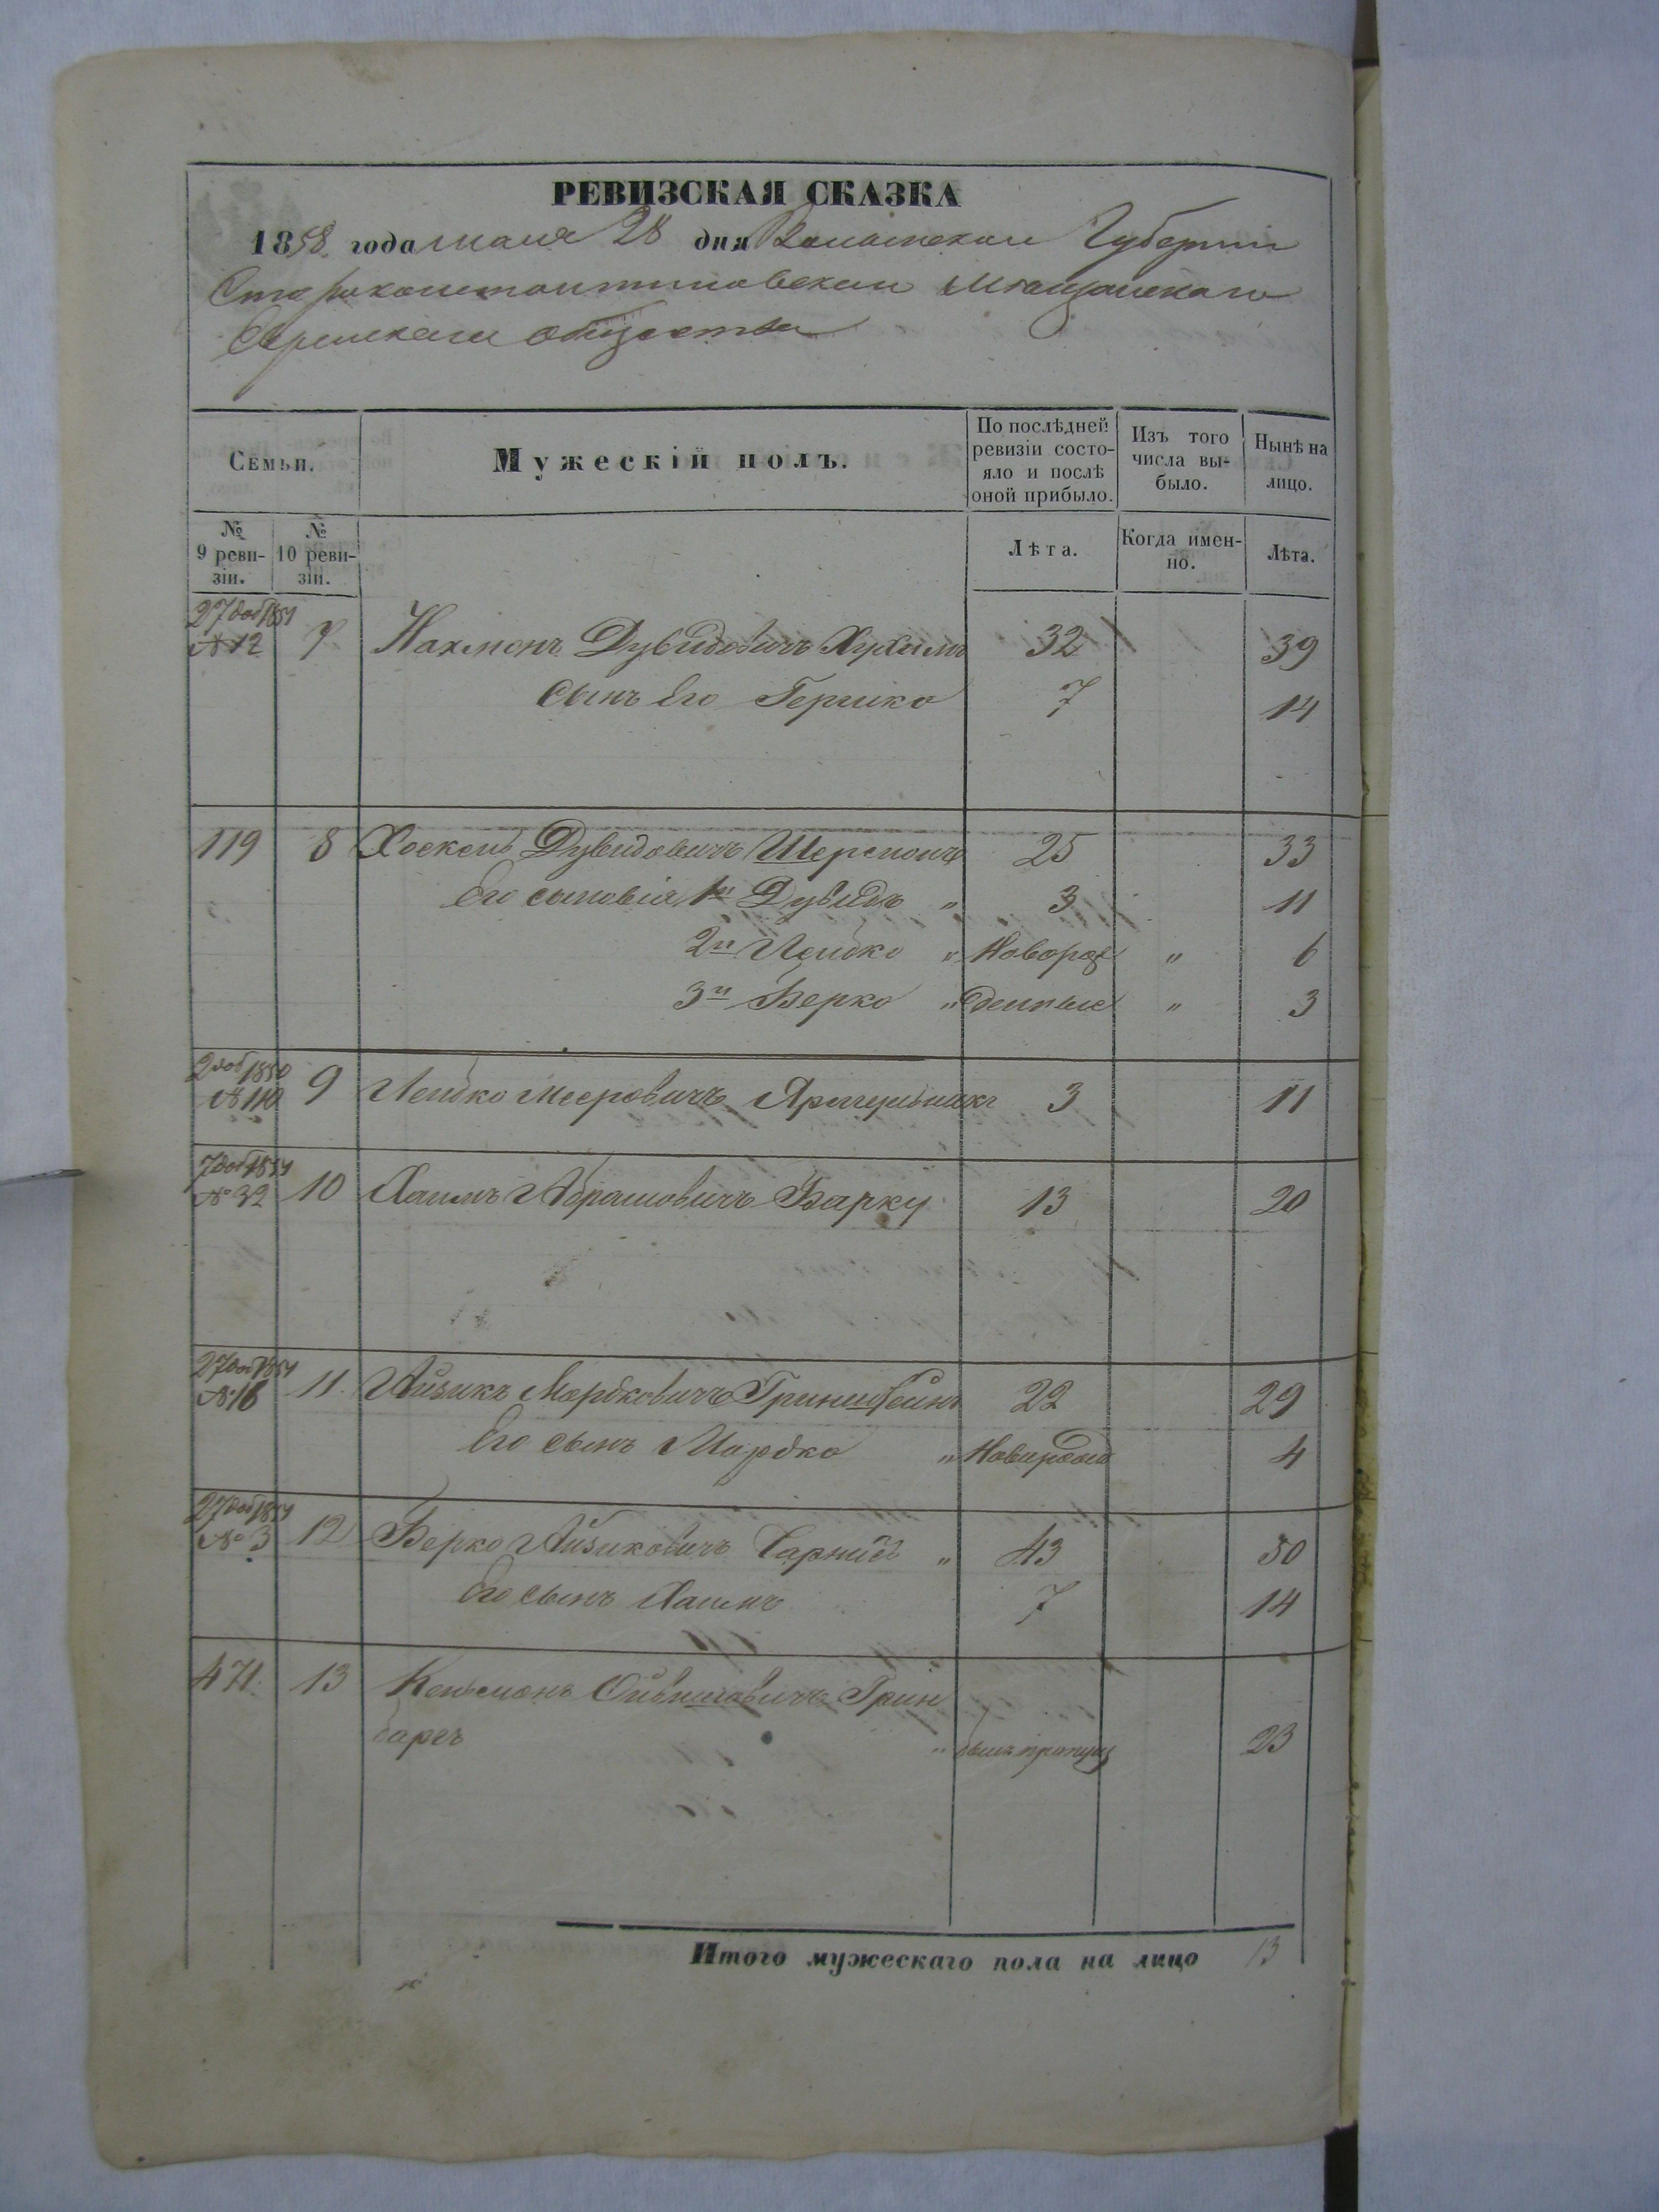 РЕВИЗСКАЯ СКАЗКА
1858 года мая 28 дня Волынской Губернии
Староконстантиновскаго Мещанскаго
Еврейскаго общества
Семьи.
Мужескій полъ.
По послѣдней ревизіи состояло и послѣ оной прибыло.
Изъ того числа выбыло.
Нынѣ на лицо.
№ 9 ревизіи.
№ 10 ревизіи.
Лѣта.
Когда именно.
Лѣта.
27 доб 1851
№ 12 7 Нахмонъ Дувидовичъ 32 39
Сынъ его Гершко 7 14
119 8 Дувидовичъ 25 33
Его сыновія 1й Дувидъ " 3 11
2й Лейбко " Новорож " 6
3й Берко " денные " 3
2 доб 1850
№ 110 9 Лейбко Мееровичъ 3 11
7 доб 1851
№ 32 10 Хаимъ Абрамовичъ Барку 13 20
27 доб 1851
№ 16 11 Айзикъ Мордковичъ Гринштейнъ 22 29
Его сынъ Мордко " Новорожд 4
27 доб 1851
№ 3 12 Берко Айзиковичъ " 43 50
Его сынъ Хаимъ 7 14
471 13 Грин
баргъ " былъ пропущ 23
Итого мужескаго пола на лицо 13